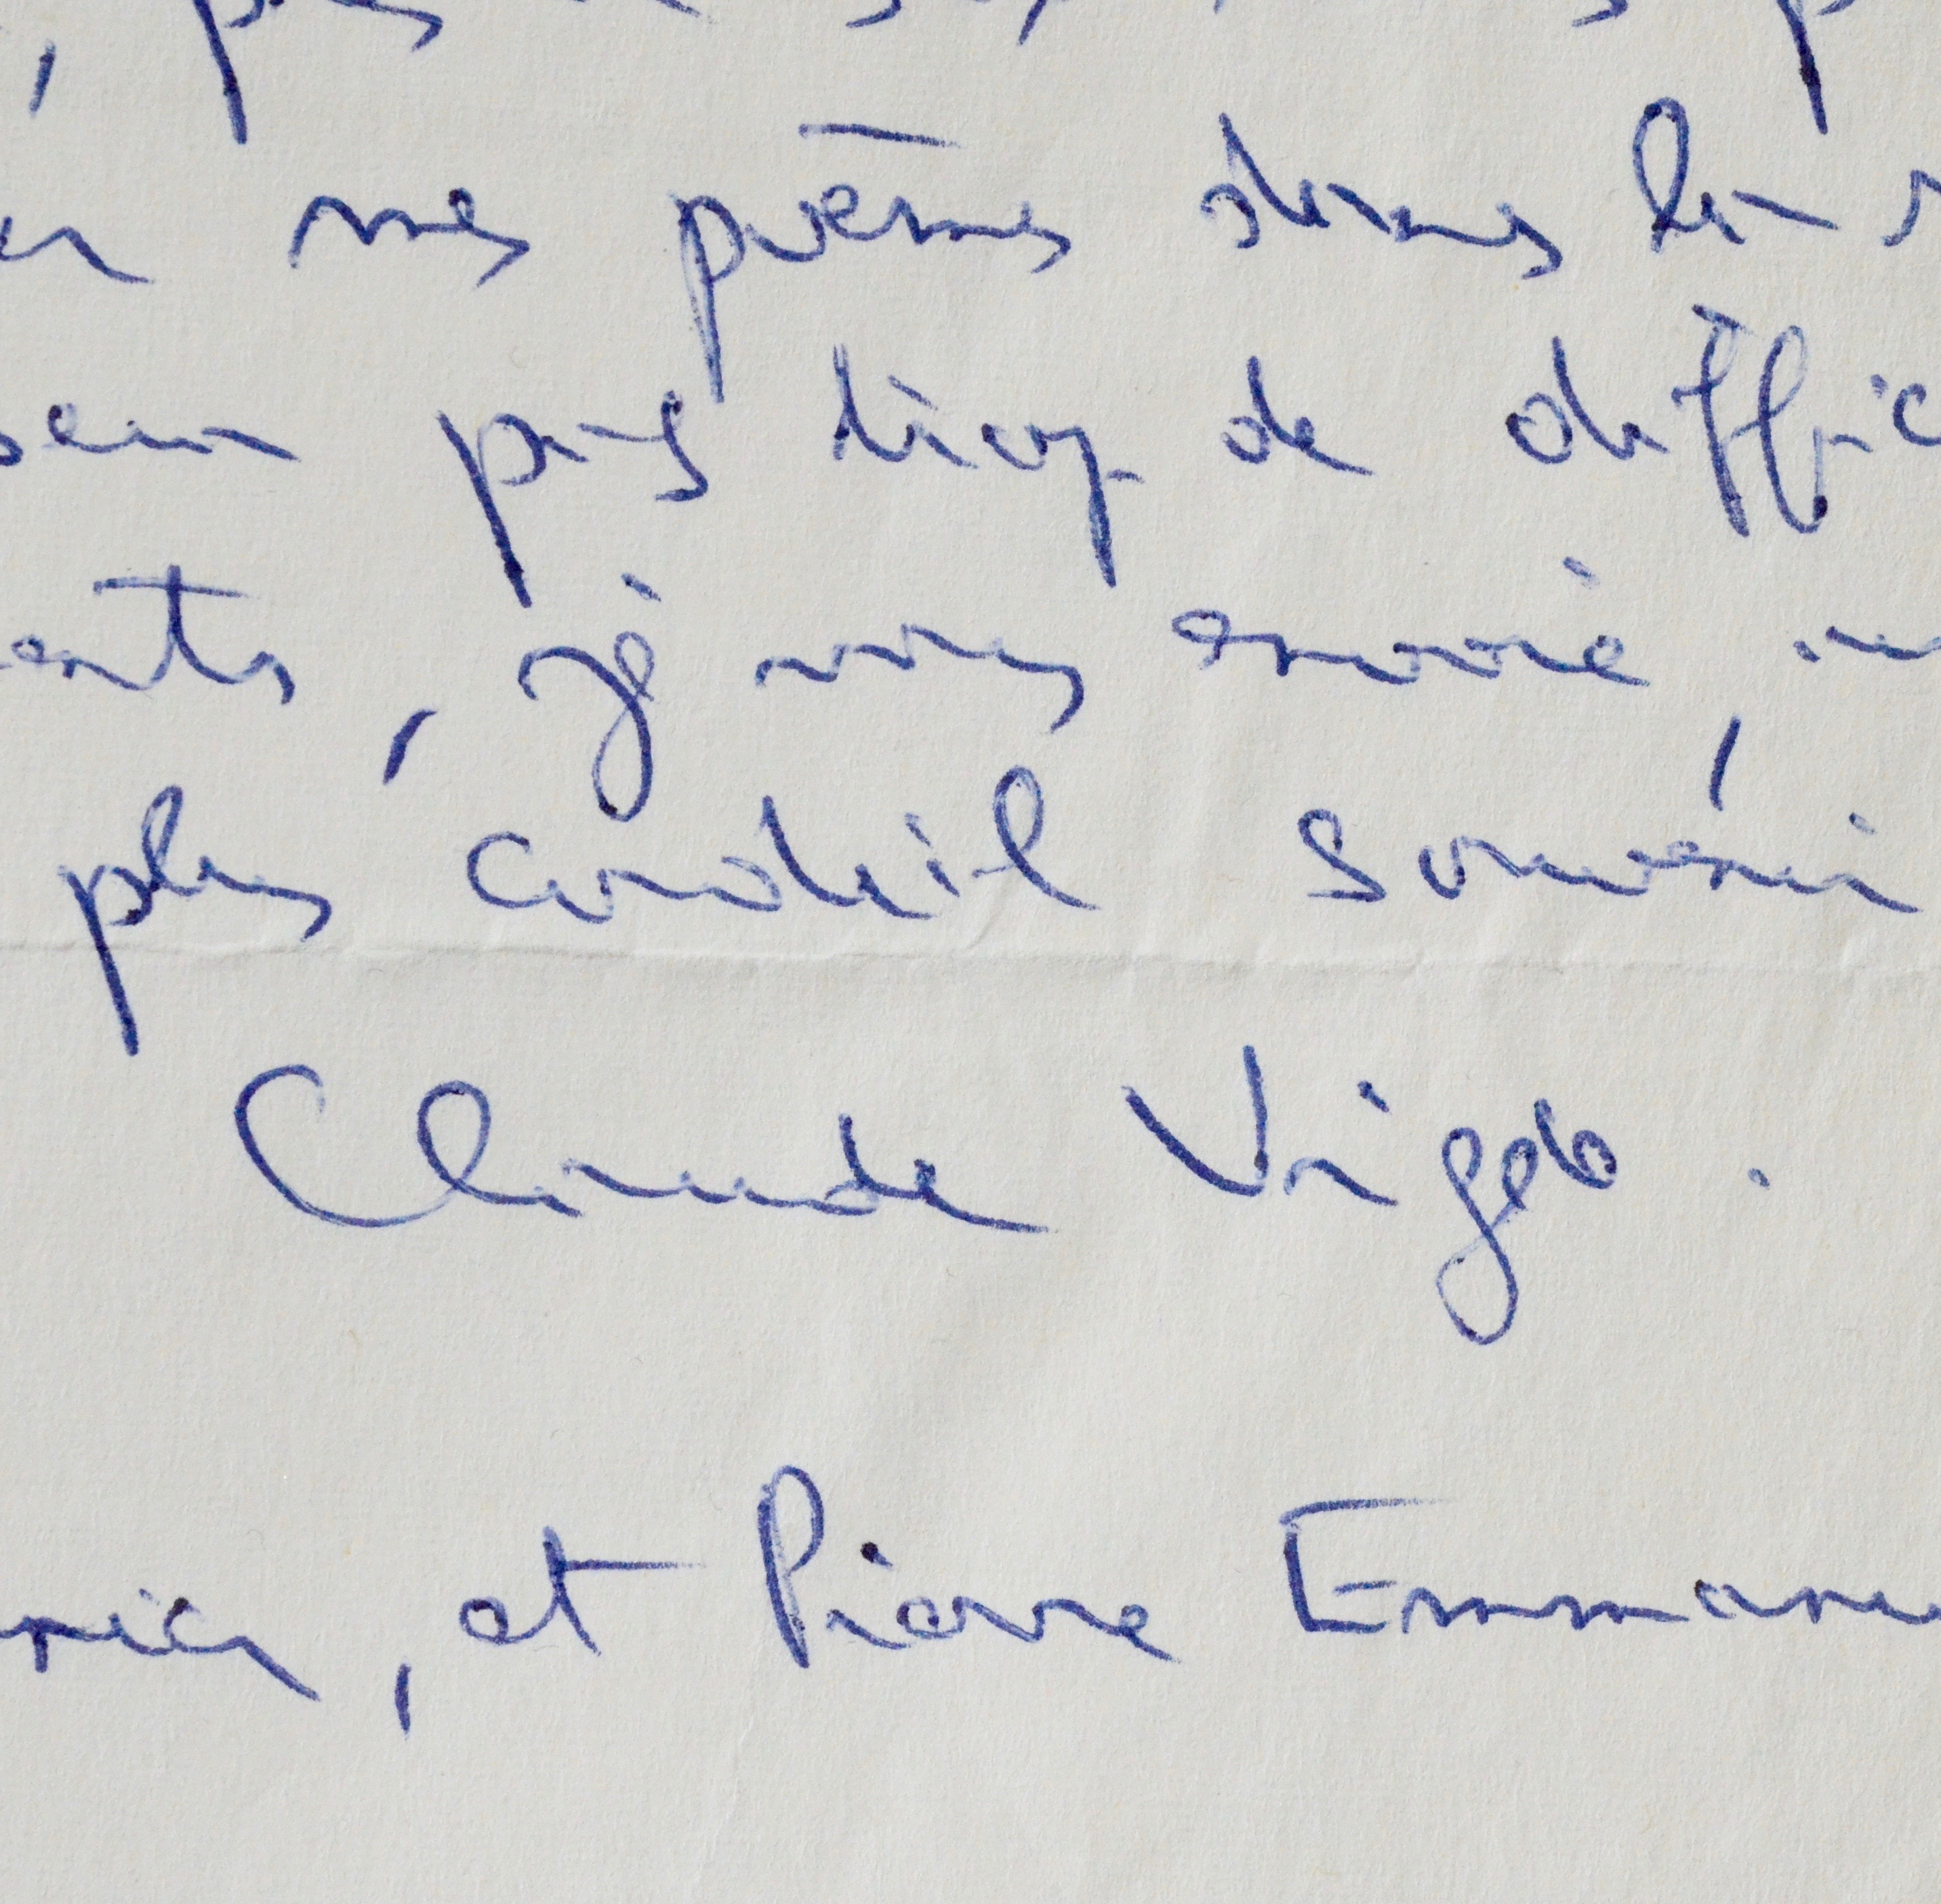 mes poèmes dans leur
pas trop de diffic
ents, je vous envoie,
plus cordial souvenir
Claude Vigée.
, et Pierre Emmanu